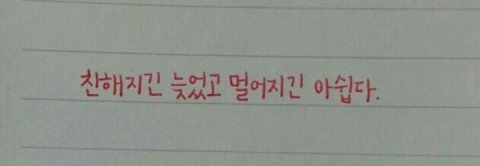 친해지긴 늦었고 멀어지긴 아쉽다.